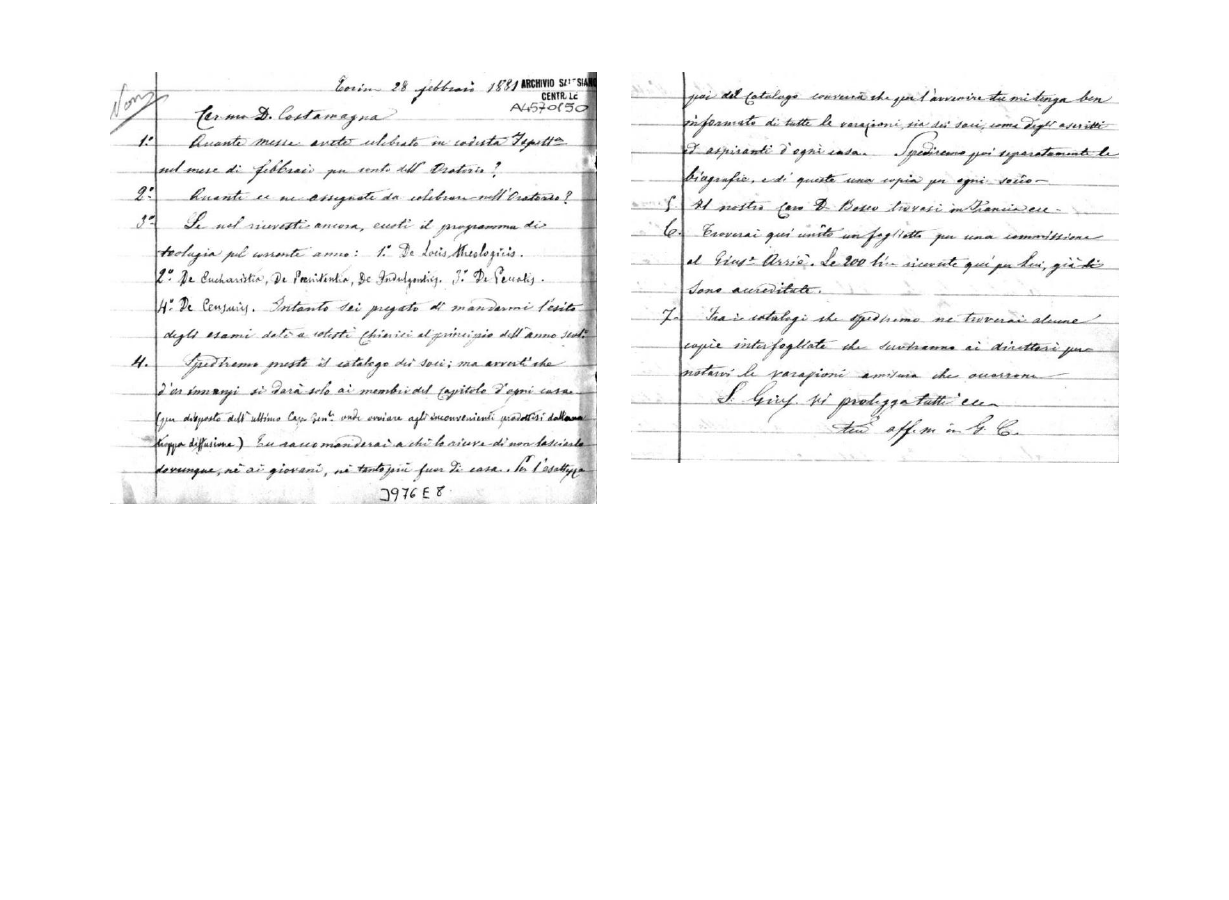 Torino 28 febbraio 1881
ARCHIVIO SALESIANO
CENTRALE
A4570150
Car.mo D. Costamagna
1.° Quante messe avete celebrato in codesta Ispett.
nel mese di febbraio per conto dell'Oratorio?
2.° Quante ce ne assegnate da celebrare nell'Oratorio?
3.° Se nol ricevesti ancora, eccoti il programma di
teologia pel corrente anno: 1.° De Locis theologicis.
2.° De Eucharistia, De Poenitentia, De Indulgentiis. 3.° De Poenalis.
4.° De Censuris. Intanto sei pregato di mandarmi l'esito
degli esami dati a codesti Chierici al principio dell'anno scol.
4. Spediremo presto il catalogo dei soci; ma avverti che
d'or innanzi si darà solo ai membri del capitolo d'ogni casa
(per disposto dell'ultimo Cap. Gen. onde ovviare agli inconvenienti prodottisi dalla
troppa diffusione) Tu raccomanderai a chi lo riceve di non lasciarlo
dovunque, nè ai giovani, nè tanto più fuor di casa. Per l'esattezza
3976 E 8
poi del Catalogo converrà che per l'avvenire tu mi tenga ben
informato di tutte le varazioni, sia dei soci, come degli ascritti
ed aspiranti d'ogni casa. Spediremo poi separatamente le
biografie, e di queste una copia per ogni socio
5. Il nostro Caro D. Bosco trovasi in Francia ecc.
6. Troverai qui unito un foglietto per una commissione
al Gius. Le 200 lire ricevute qui per lui, già ti
sono accreditate.
7. Fra i catalogi che spediremo ne troverai alcune
copie interfogliate che serviranno ai direttori per
notarvi le varazioni a misura che occorrono
S. Gius. vi protegga tutti ecc.
tuo aff.m in G. C.